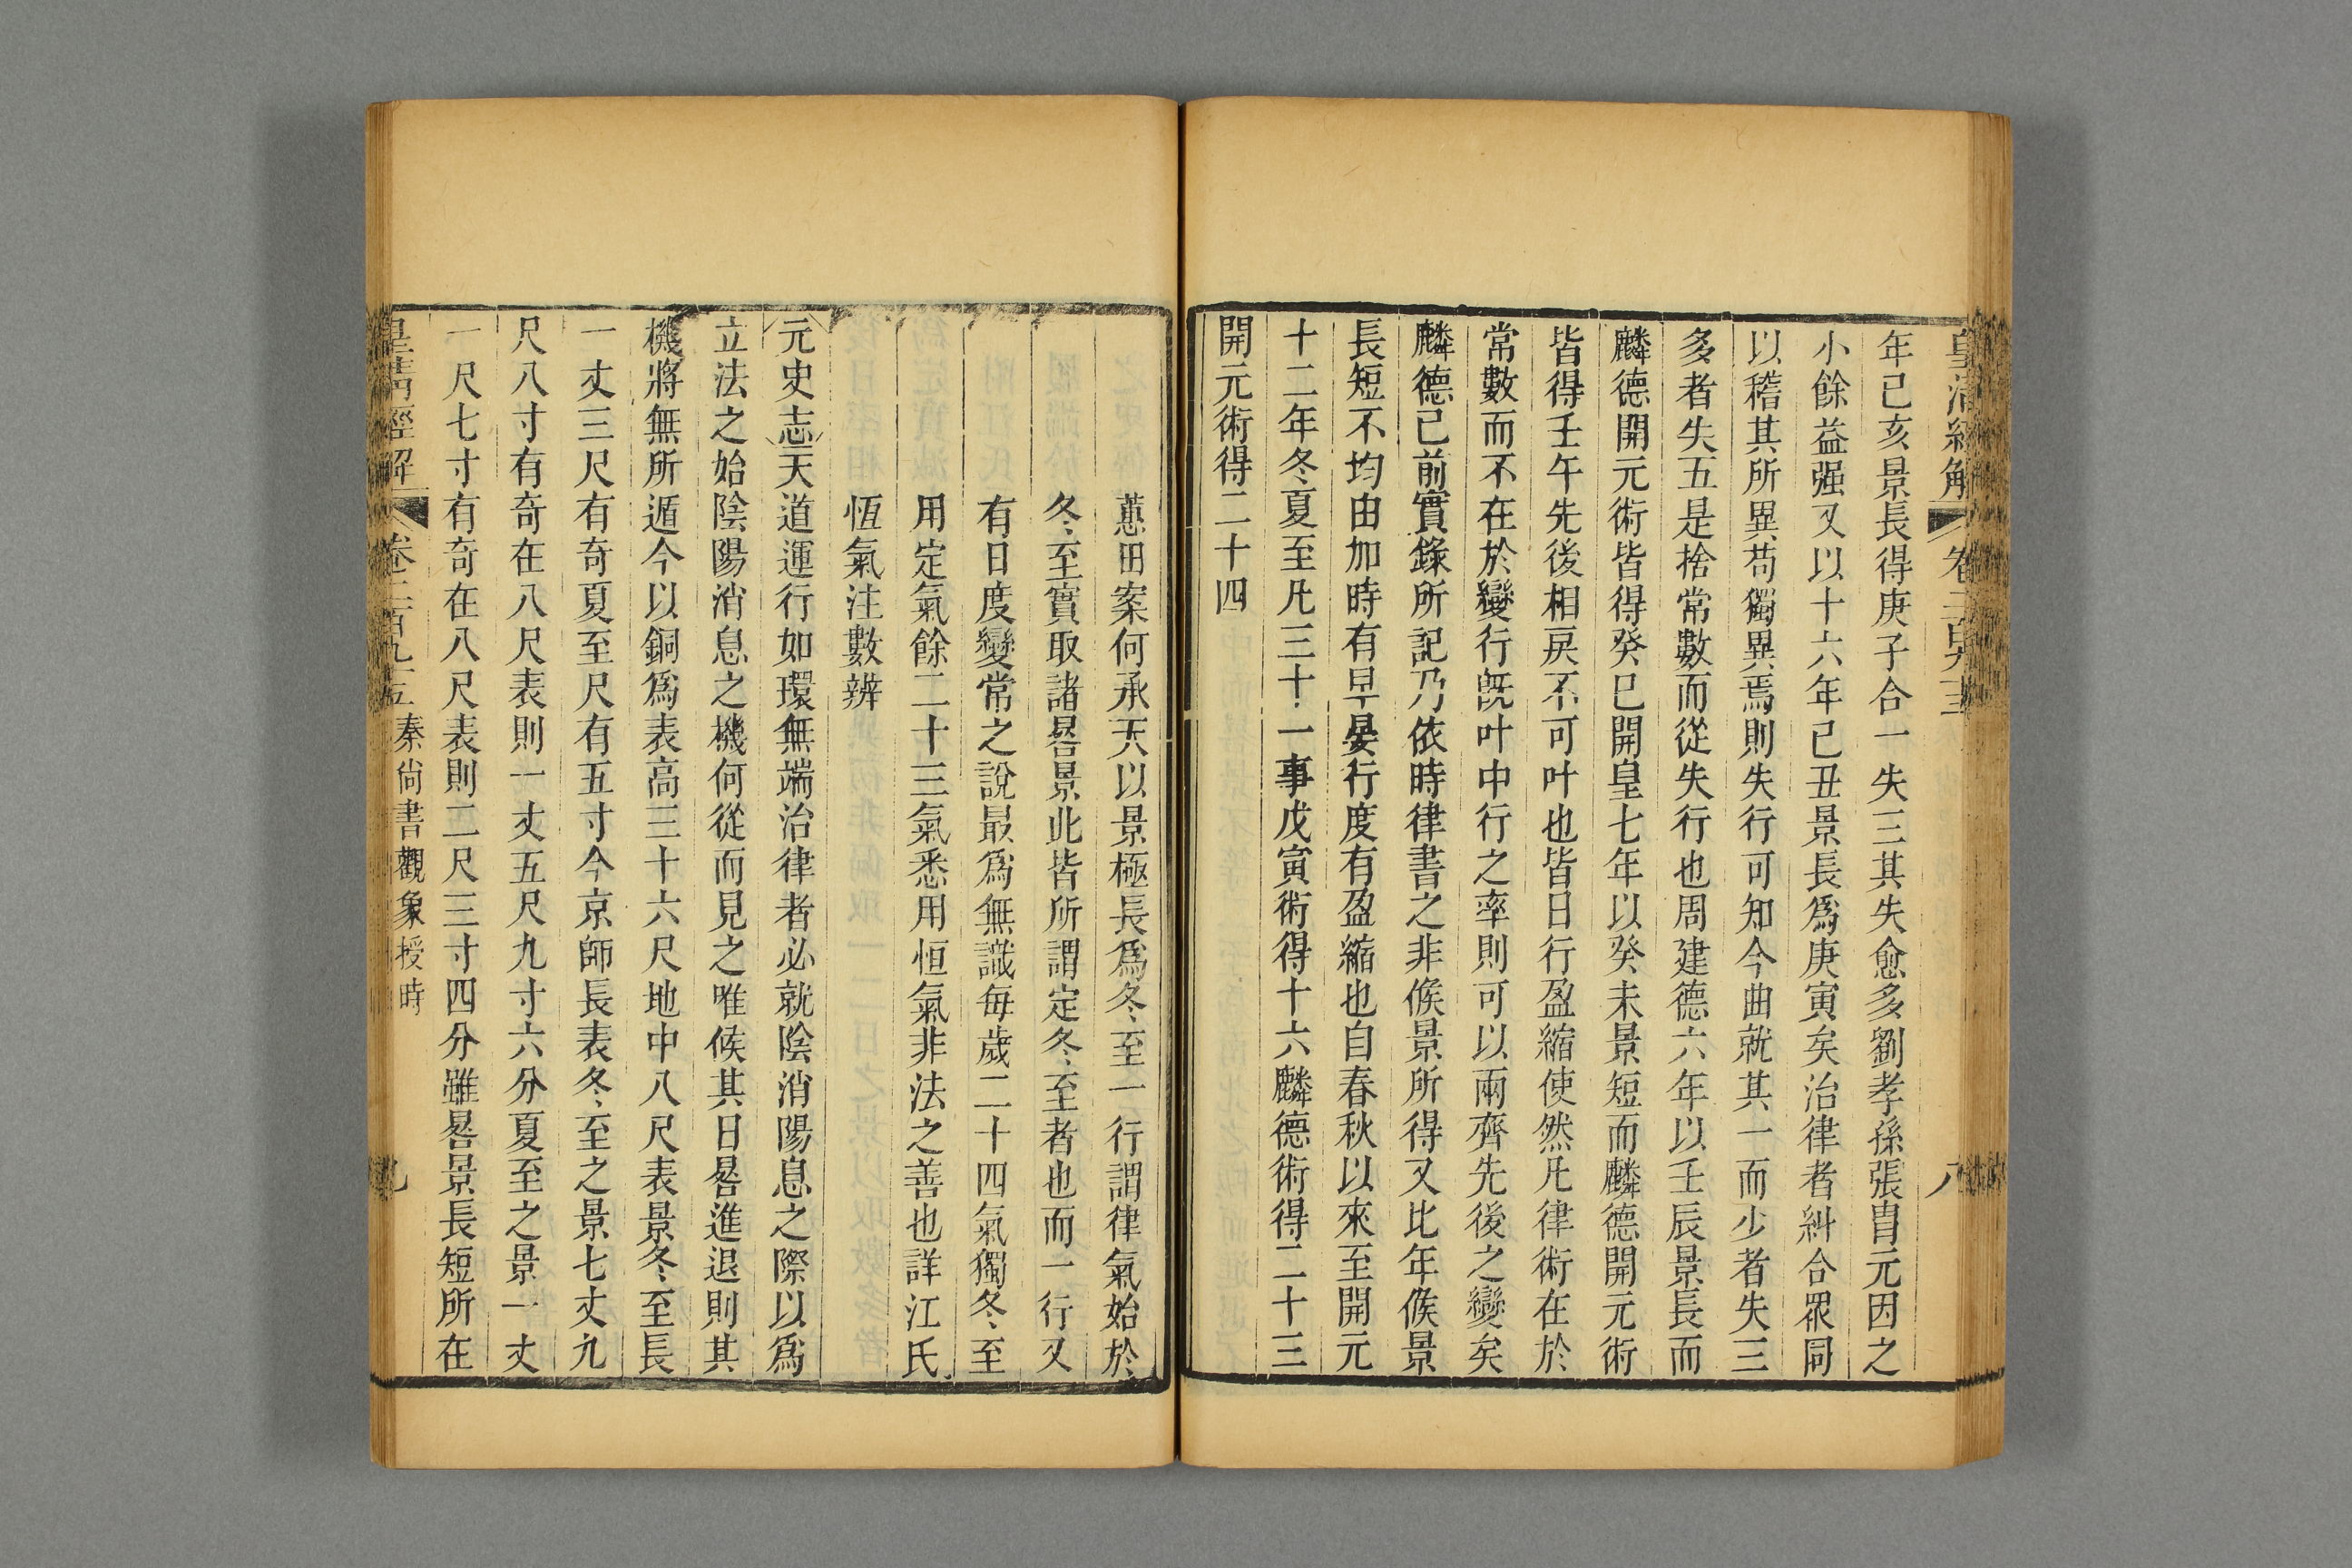 皇清經解 卷二百九十五 八
年己亥景長得庚子合一失三其失愈多劉孝孫張冑元因之
小餘益强又以十六年己丑景長爲庚寅矣治律者糾合眾同
以稽其所異苟獨異焉則失行可知今曲就其一而少者失三
多者失五是捨常數而從失行也周建德六年以壬辰景長而
麟德開元術皆得癸巳開皇七年以癸未景短而麟德開元術
皆得壬午先後相戾不可叶也皆日行盈縮使然凡律術在於
常數而不在於變行旣叶中行之率則可以兩齊先後之變矣
麟德已前實錄所記乃依時律書之非候景所得又比年候景
長短不均由加時有早晏行度有盈縮也自春秋以來至開元
十二年冬夏至凡三十一事戊寅術得十六麟德術得二十三
開元術得二十四
蕙田案何承天以景極長爲冬至一行謂律氣始於
冬至實取諸晷景此皆所謂定冬至者也而一行又
有日度變常之說最爲無識每歲二十四氣獨冬至
用定氣餘二十三氣悉用恒氣非法之善也詳江氏
恆氣注數辨
元史志天道運行如環無端治律者必就陰消陽息之際以爲
立法之始陰陽消息之機何從而見之唯候其日晷進退則其
機將無所遁今以銅爲表高三十六尺地中八尺表景冬至長
一丈三尺有奇夏至尺有五寸今京師長表冬至之景七丈九
尺八寸有奇在八尺表則一丈五尺九寸六分夏至之景一丈
一尺七寸有奇在八尺表則二尺三寸四分雖晷景長短所在
皇清經解 卷二百九十五 秦尙書觀象授時 九